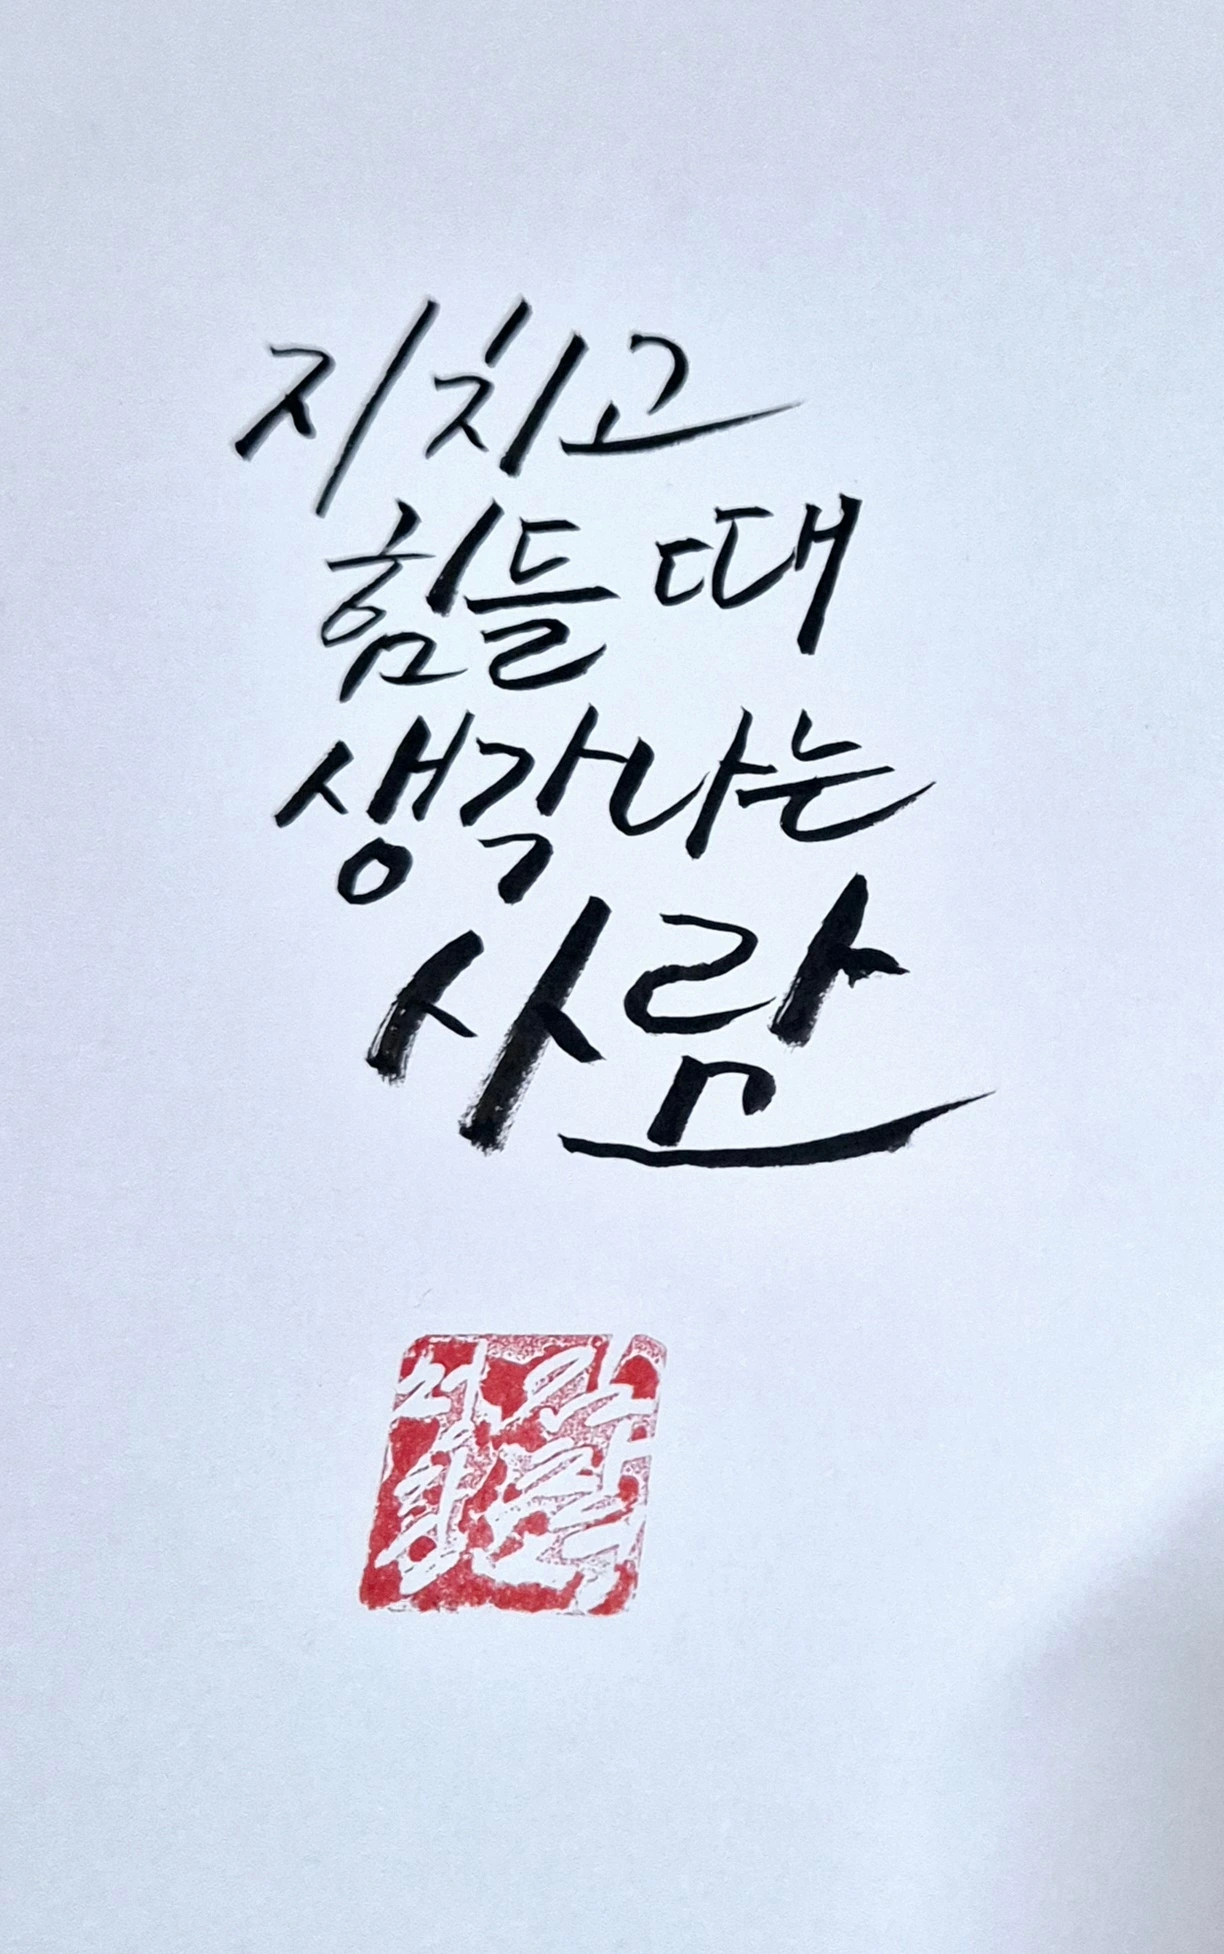 지치고
힘들 때
생각나는
사람